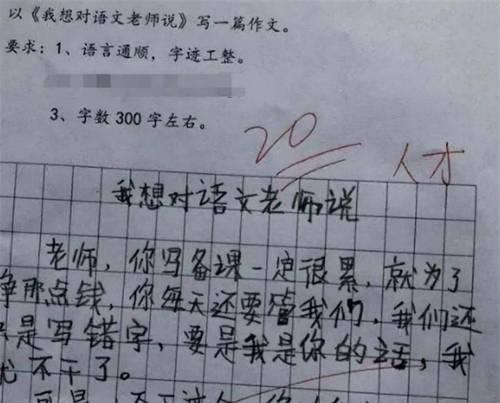 以《我想对语文老师说》写一篇作文。
要求：1、语言通顺，字迹工整。
3、字数 300 字左右。
20
人才
我想对语文老师说
老师，你写备课一定很累，就为了
挣那点钱，你每天还要管我们，我们还
是写错字，要是我是你的话，我
不干了。
可是，